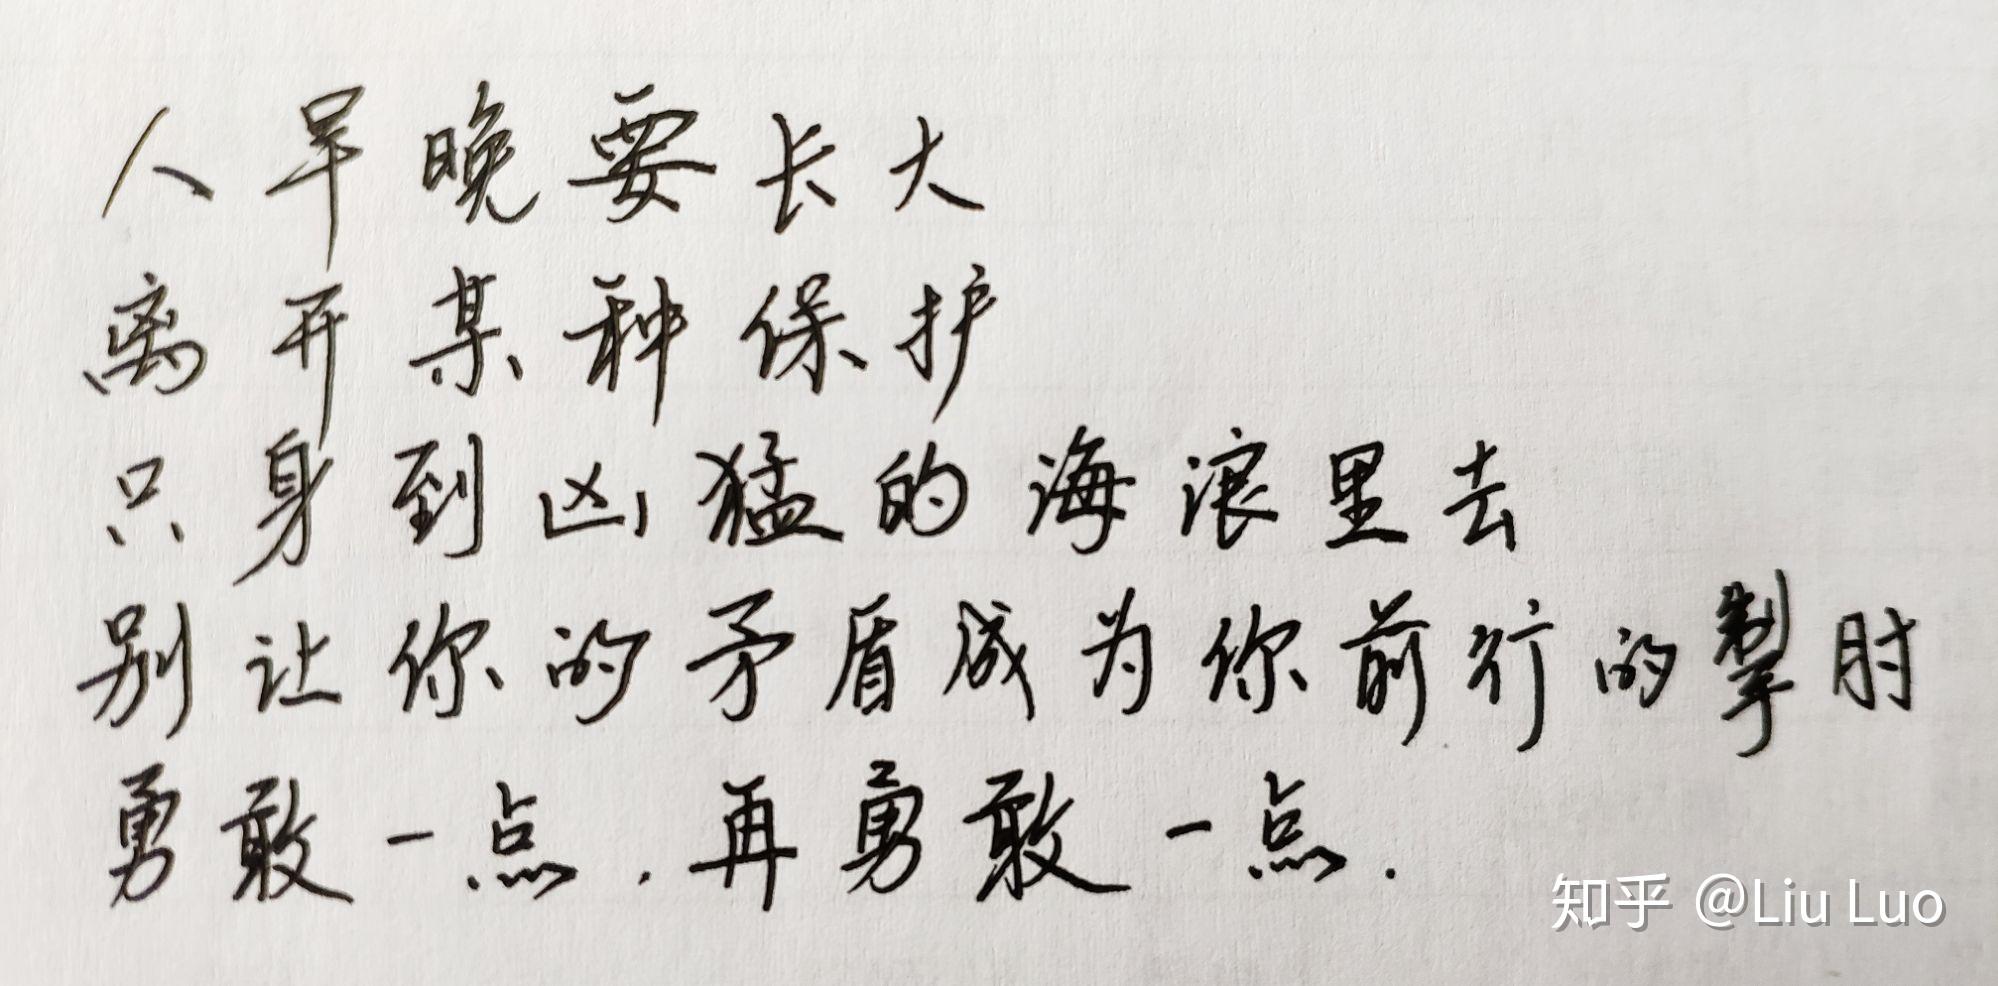 人早晚要长大
离开某种保护
只身到凶猛的海浪里去
别让你的矛盾成为你前行的掣肘
勇敢一点.再勇敢一点.
知乎 @Liu Luo